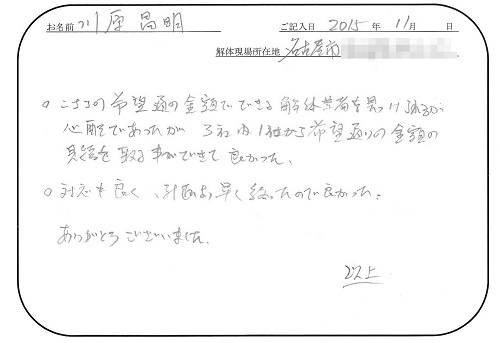 お名前 川原昌明 ご記入日 2015年 11月 日
解体現場所在地 名古屋市
○ こちらの希望通の金額でできる解体業者を見つけられるか
心配であったが 3社内1社から希望通りの金額の
見積を取る事ができて良かった。
○ 対応も良く、計画より早く終ったので良かった。
ありがとうございました。
以上